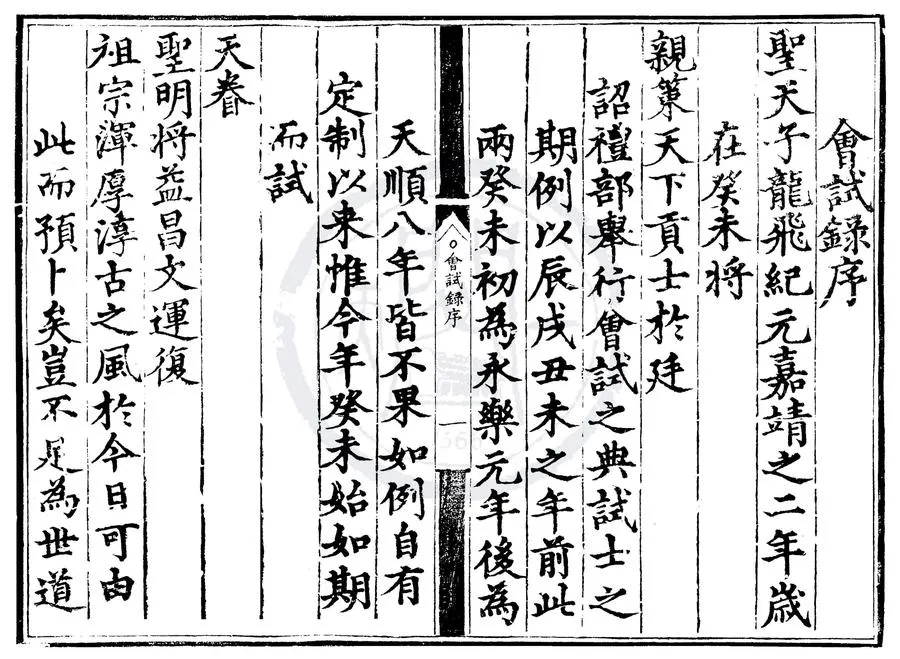 會試錄序
聖天子龍飛紀元嘉靖之二年歲
在癸未將
親策天下貢士於廷
詔禮部舉行會試之典試士之
期例以辰戌丑未之年前此
兩癸未初為永樂元年後為
會試錄序
一
天順八年皆不果如例自有
定制以来惟今年癸未始如期
而試
天眷
聖明将益昌文運復
祖宗渾厚淳古之風於今日可由
此而預卜矣豈不足為世道